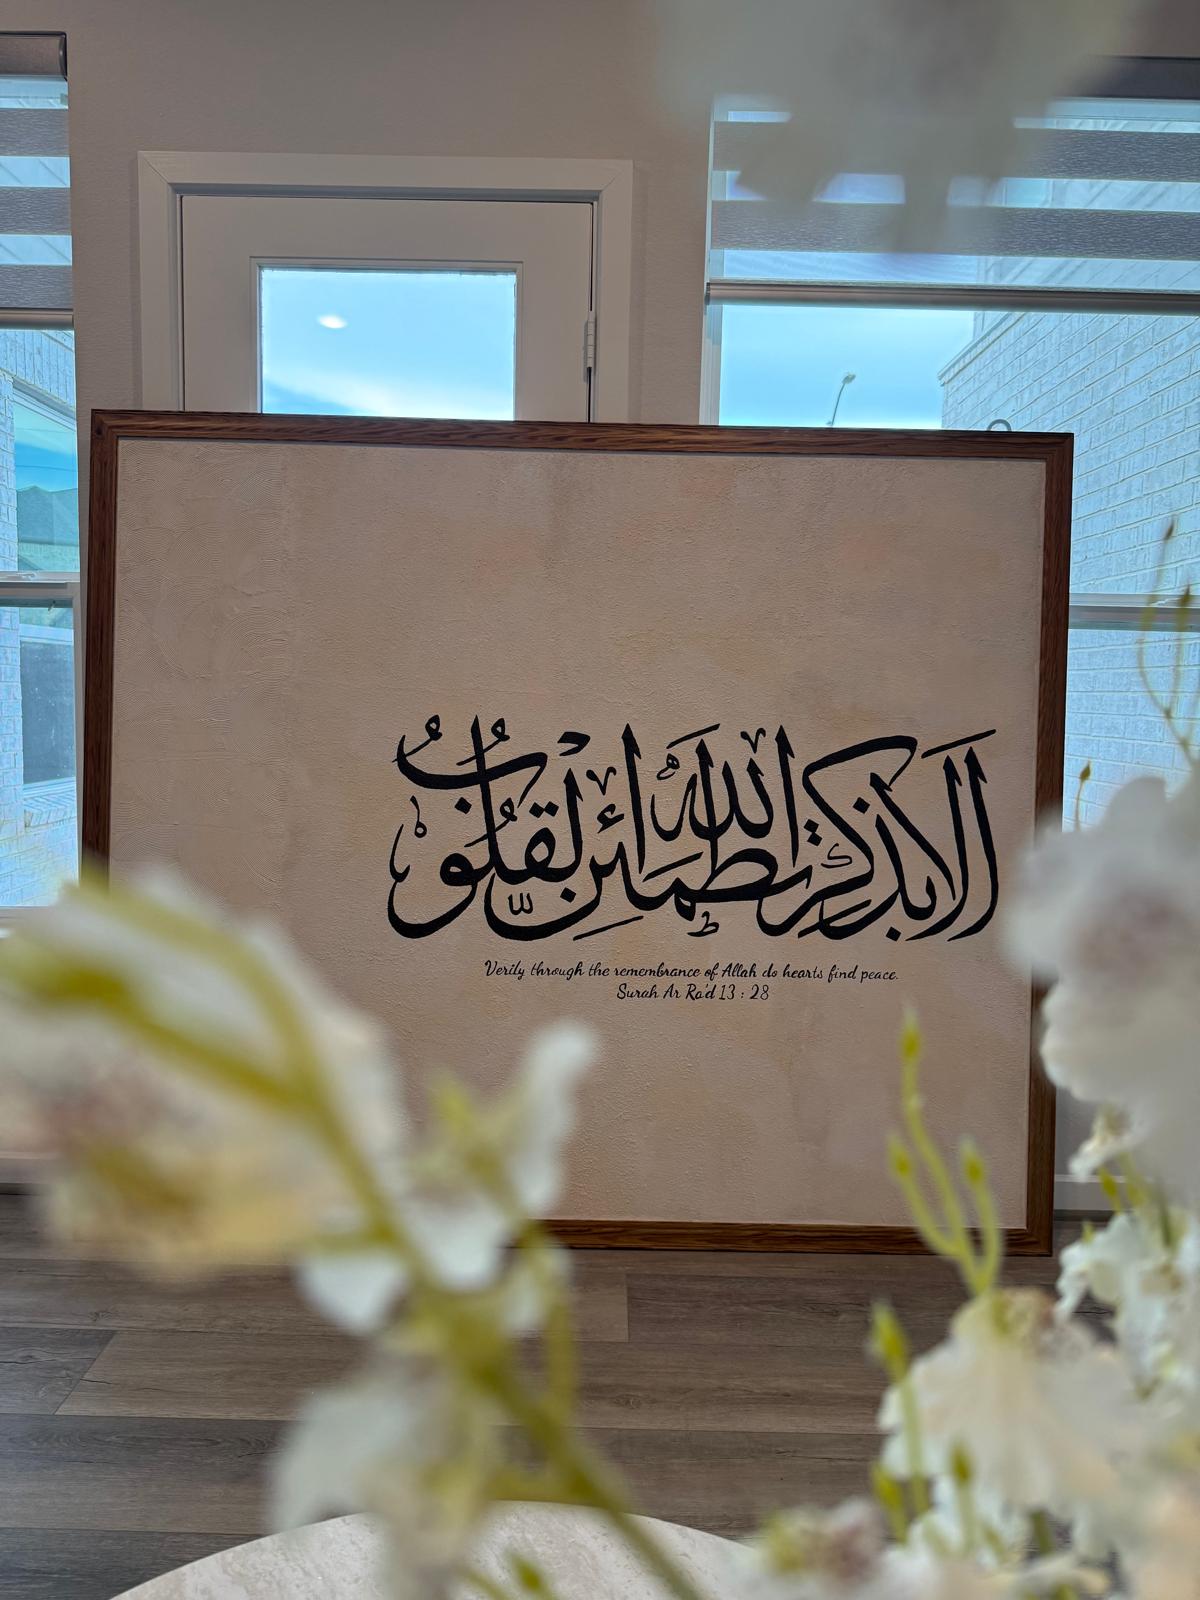 ألا بذكر الله تطمئن القلوب
Verily through the remembrance of Allah do hearts find peace.
Surah Ar Ra'd 13 : 28